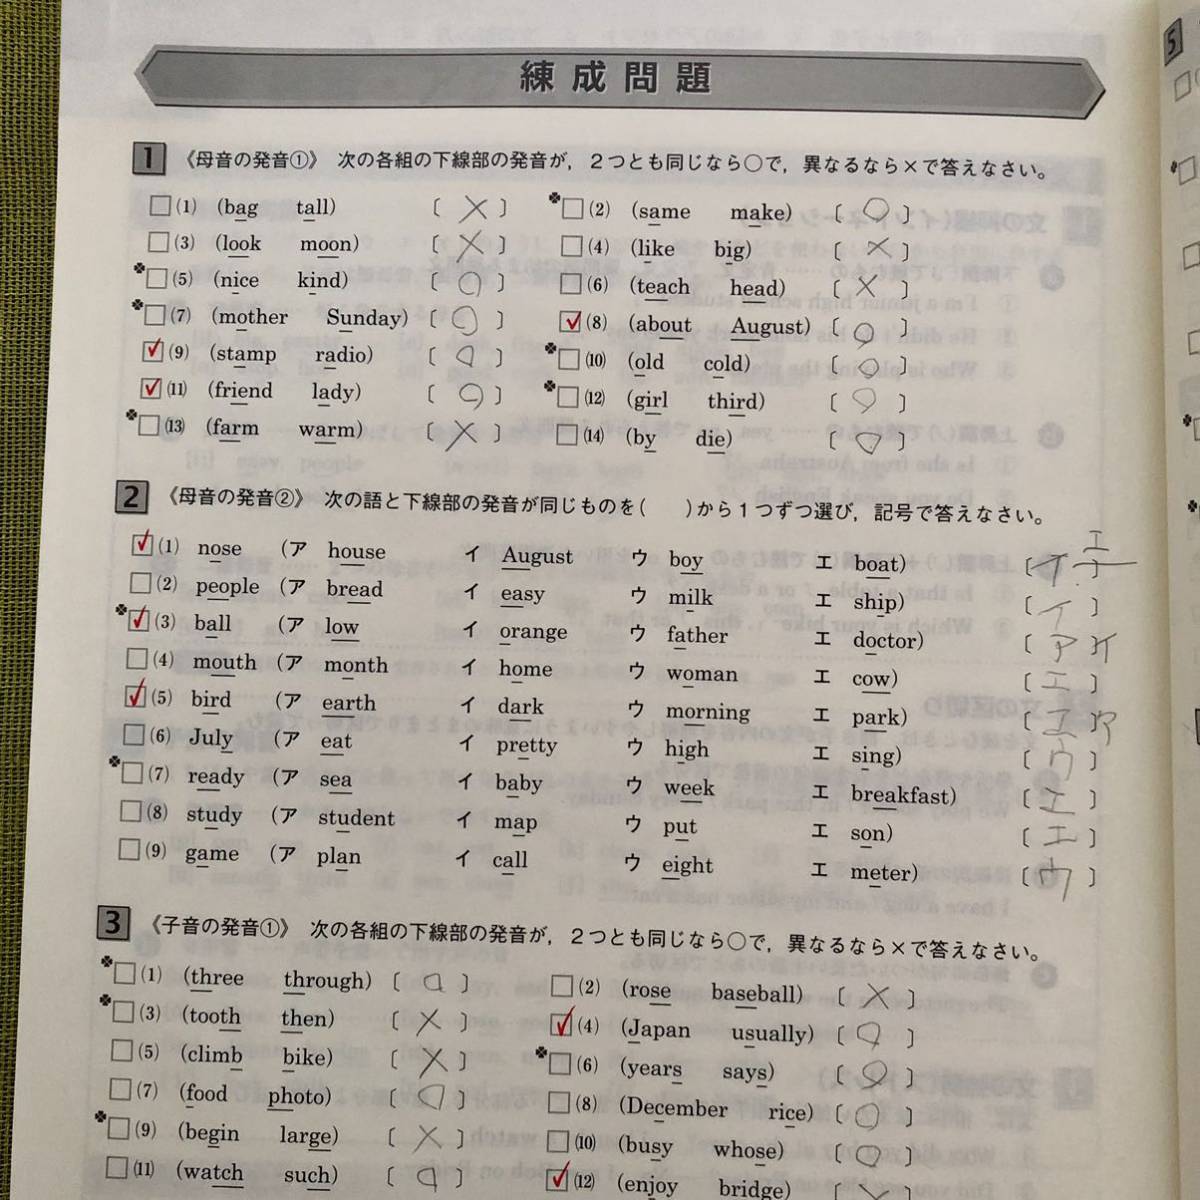 練成問題
5
1 《母音の発音①》 次の各組の下線部の発音が，２つとも同じなら○で，異なるなら×で答えなさい。
(1) (bag tall) 〔 × 〕 (2) (same make) 〔 ○ 〕
(3) (look moon) 〔 × 〕 (4) (like big) 〔 × 〕
(5) (nice kind) 〔 ○ 〕 (6) (teach head) 〔 × 〕
(7) (mother Sunday) 〔 ○ 〕 (8) (about August) 〔 ○ 〕
(9) (stamp radio) 〔 ○ 〕 (10) (old cold) 〔 ○ 〕
(11) (friend lady) 〔 ○ 〕 (12) (girl third) 〔 ○ 〕
(13) (farm warm) 〔 × 〕 (14) (by die) 〔 ○ 〕
2 《母音の発音②》 次の語と下線部の発音が同じものを( )から１つずつ選び，記号で答えなさい。
(1) nose (ア house イ August ウ boy エ boat) 〔 イ 〕 エ
(2) people (ア bread イ easy ウ milk エ ship) 〔 イ 〕
(3) ball (ア low イ orange ウ father エ doctor) 〔 ア イ
(4) mouth (ア month イ home ウ woman エ cow) 〔 エ 〕
(5) bird (ア earth イ dark ウ morning エ park) 〔 エ ア
(6) July (ア eat イ pretty ウ high エ sing) 〔 ウ 〕
(7) ready (ア sea イ baby ウ week エ breakfast) 〔 エ 〕
(8) study (ア student イ map ウ put エ son) 〔 エ 〕
(9) game (ア plan イ call ウ eight エ meter) 〔 ウ 〕
3 《子音の発音①》 次の各組の下線部の発音が，２つとも同じなら○で，異なるなら×で答えなさい。
(1) (three through) 〔 ○ 〕 (2) (rose baseball) 〔 × 〕
(3) (tooth then) 〔 × 〕 (4) (Japan usually) 〔 ○ 〕
(5) (climb bike) 〔 × 〕 (6) (years says) 〔 ○ 〕
(7) (food photo) 〔 ○ 〕 (8) (December rice) 〔 ○ 〕
(9) (begin large) 〔 × 〕 (10) (busy whose) 〔 ○ 〕
(11) (watch such) 〔 ○ 〕 (12) (enjoy bridge) 〔 × 〕